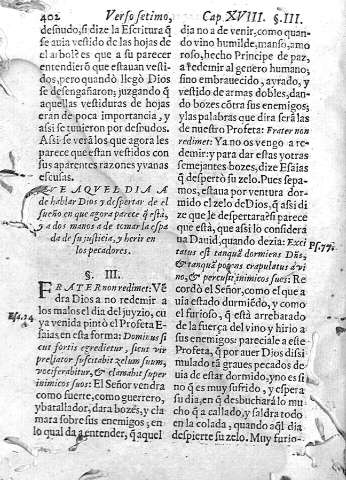 402 Verso setimo, Cap. XVIII. §. III.
desnudo, si dize la Escritura q̃
se auia vestido de las hojas de
el arbol? es que a su parecer
entendierõ que estauan vesti-
dos, pero quando llegò Dios
se desengañarõ; juzgando q̃
aquellas vestiduras de hojas
eran de poca importancia, y
assi se tunieron por desnudos.
Assi se verà los que agora les
parece que estan vestidos con
sus aparentes razones y vanas
escusas.
QVE AQVEL DIA A
de hablar Dios y despertar de el
sueño en que agora parece q̃ està,
y a dos manos a de tomar la espa
da de su justicia, y herir en
los pecadores.
§. III.
FRATER non redimet: Vẽ
drà Dios a no redemir a
los malos el dia del juyzio, cu
ya venida pintò el Profeta E-
Esa. 24. saias, en esta forma: Dominus si
cut fortis egredietur, sicut vir
preliator suscitabit zelum suum,
vociferabitur, & clamabit super
inimicos suos: El Señor vendra
como fuerte, como guerrero,
y batallador, dara bozes, y cla
mara sobre sus enemigos; en
lo qual da a entender, q̃ aquel
dia no a de venir, como quan-
do vino humilde, manso, amo
roso, hecho Principe de paz,
a redemir al genero humano,
sino embrauecido, ayrado, y
vestido de armas dobles, dan-
do bozes cõtra sus enemigos;
y las palabras que dira serà las
de nuestro Profeta: Frater non
redimet: Ya no os vengo a re-
demir: y para dar estas y otras
semejantes bozes, dize Esaias
q̃ despertò su zelo. Pues sepa-
mos, estaua por ventura dor-
mido el zelo de Dios, q̃ assi di
ze que le despertara? si parece
que està, que assi lo considera
ua Dauid, quando dezia: Exci
Ps. 77. tatus est tanquã dormiens Dñs,
& tanquã potens crapulatus à vi
no, & percussit inimicos suos: Re
cordò el Señor, como el que a
uia estado durmiẽdo, y como
el furioso, q̃ està arrebatado
de la fuerça del vino y hirio a
sus enemigos: pareciale a este
Profeta, q̃ por auer Dios dissi
mulado tã graues pecados de
uia de estar dormido, y no es si
no q̃ es muy sufrido, y espera
su dia, en q̃ desbucharà lo mu
cho q̃ a callado, y saldra todo
en la colada, quando aq̃l dia
despierte su zelo. Muy furio-